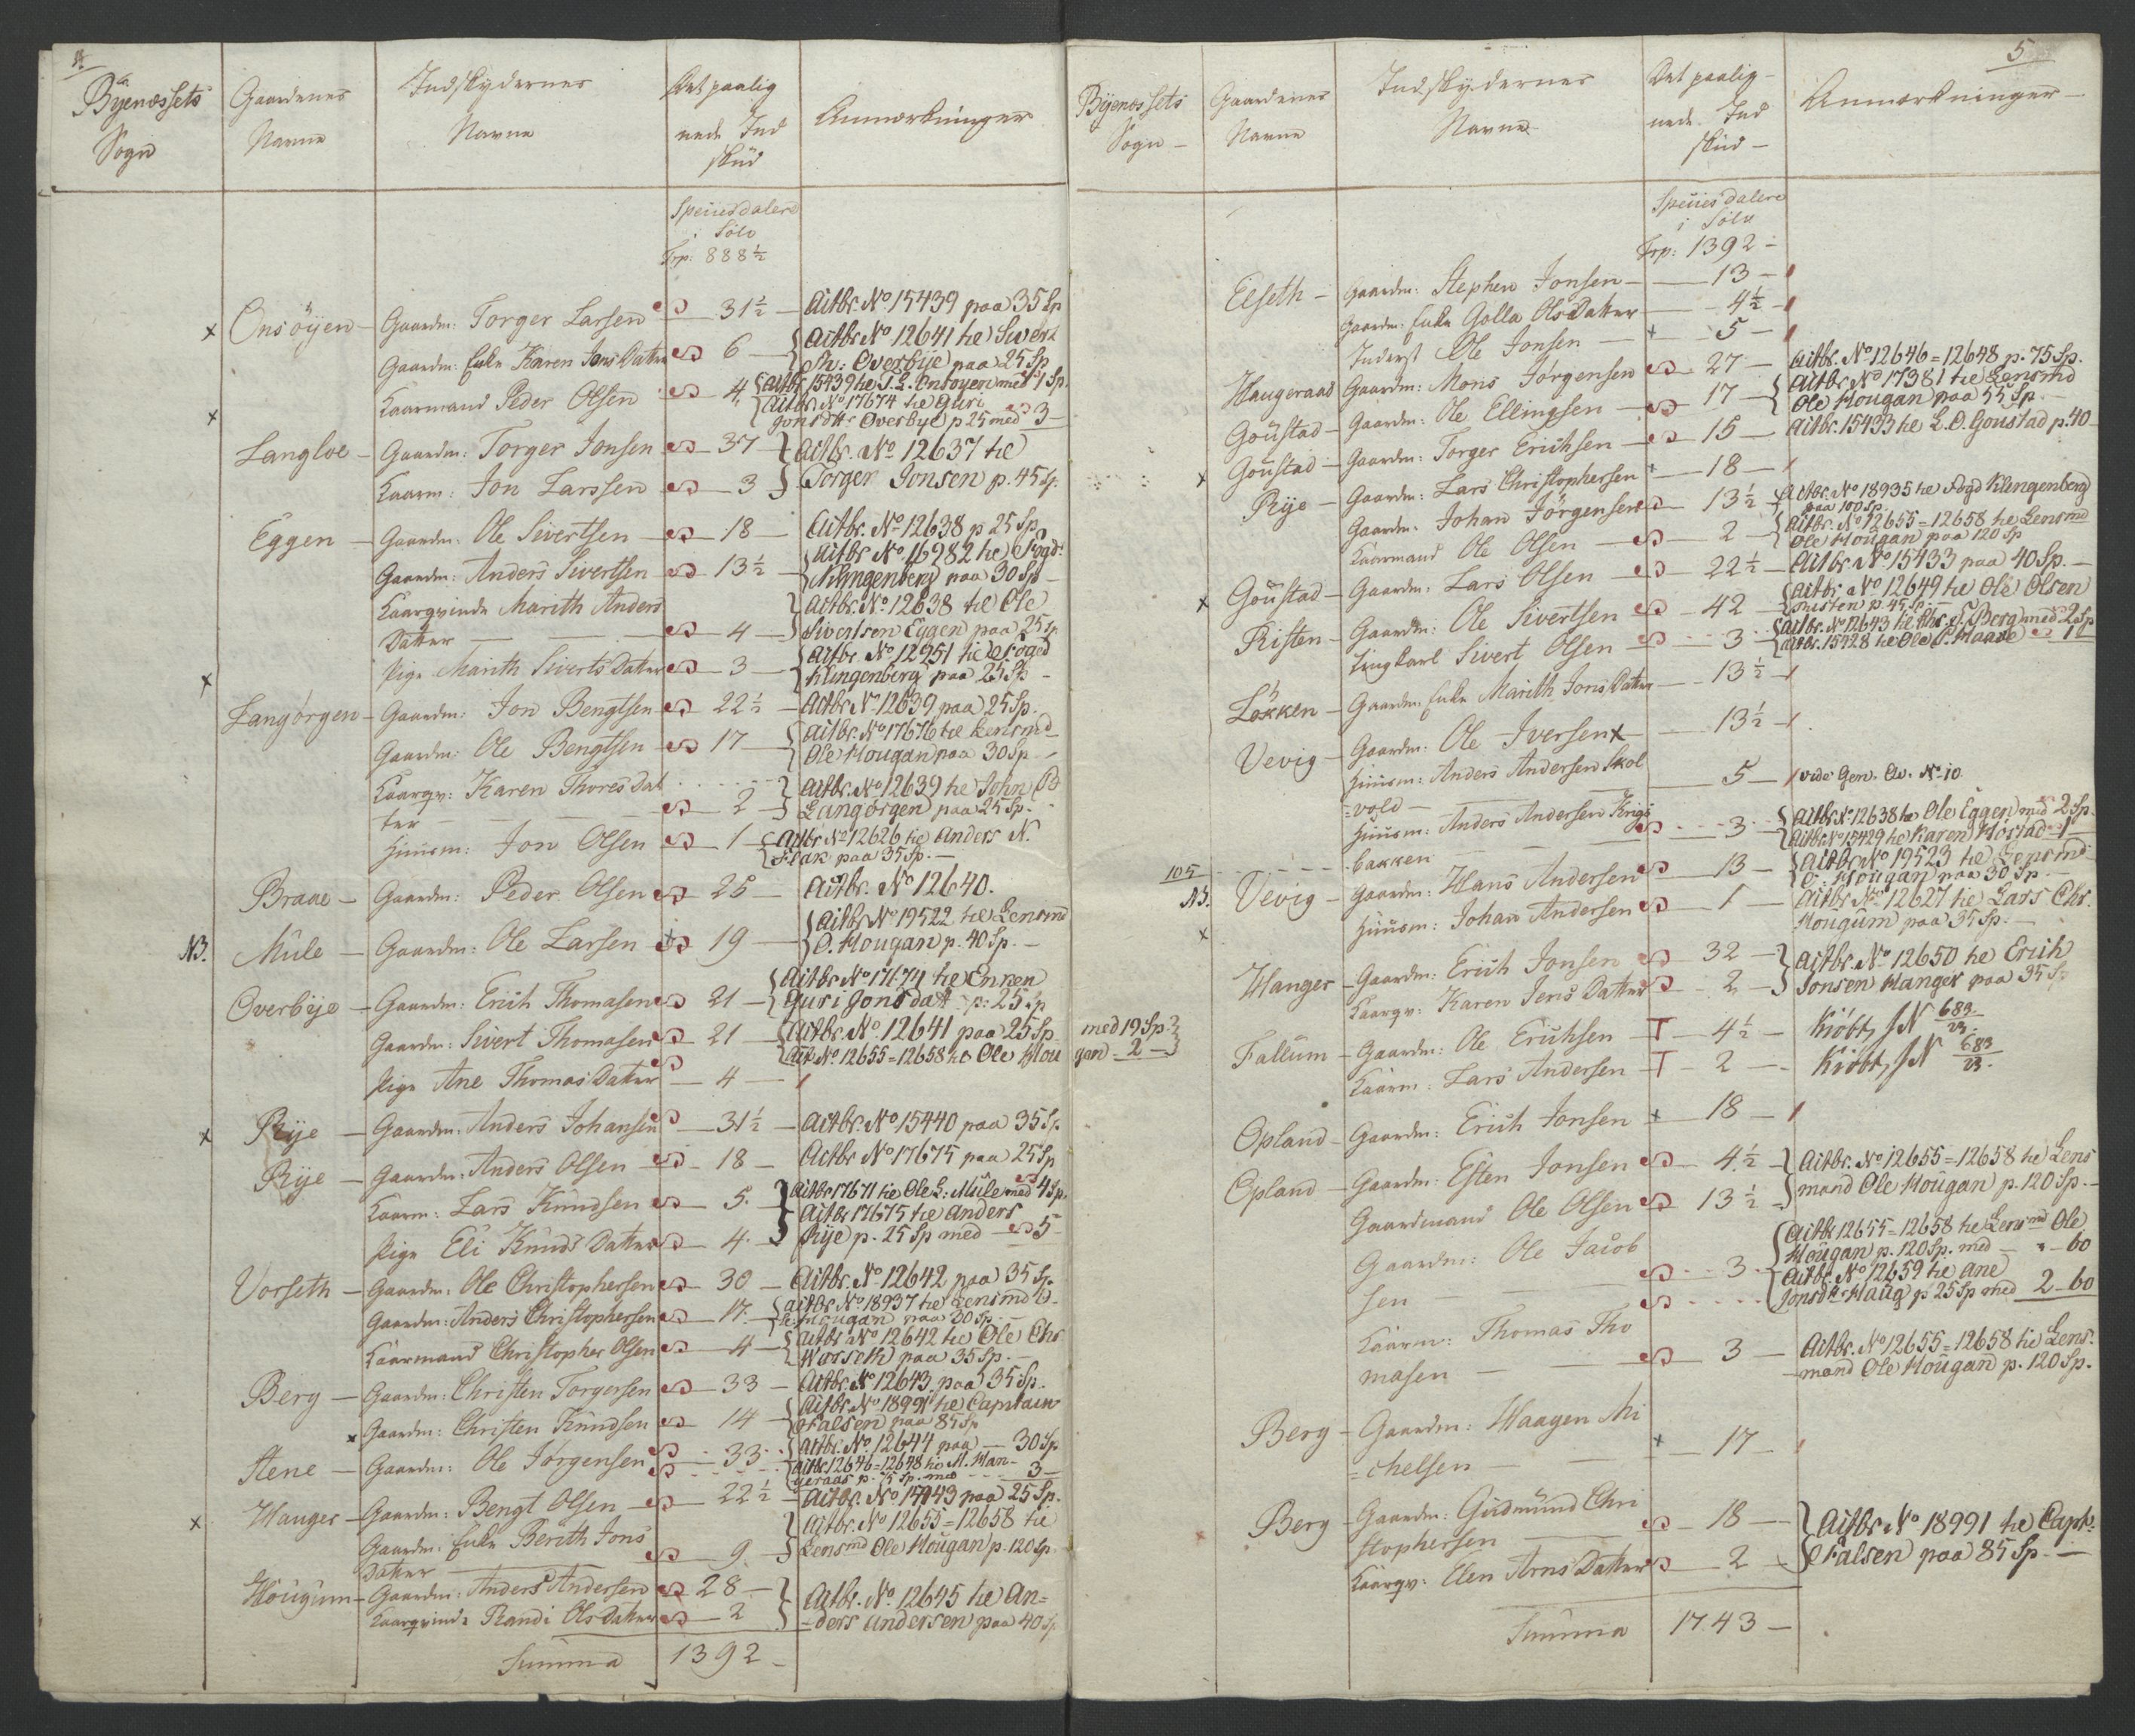 Byenæssets Sogn
Gaardenes Navne
Indskydernes Navne
Det paalignede Indskud
Anmærkninger
Speciesdalere i Sølv
Trp: 888½
x Onsöyen – Gaardm: Torger Larsen 31½ – Actbr. No 15439 paa 35 Sp
Gaardm: Enke Karen Jons Datter 6 – Actbr No 12641 til Sivert
Th: Overbye paa 25 Sp
Kaarmand Peder Olsen 4 Actbr 15439 til T. L. Onsöyen med 1 Sp.
Actbr. No 17674 til Guri
x Jonsdtr Overbye p 25 med 3 –
Langloe – Gaardm: Torger Jonsen 37 Actbr. No 12637 til
Kaarm: Jon Larssen 3 Torger Jonsen p. 45 Sp.
Eggen – Gaardm: Ole Sivertsen 18 – Actbr. No 12638 p 25 Sp
Gaardm: Anders Sivertsen 13½ Actbr No 16982 til Fogd:
Klingenberg paa 30 Sp –
Kaarqvinde Marith Anders Actbr. No 12638 til Ole
Datter 4 Sivertsen Eggen paa 25 Sp
Pige Marith Siverts Datter 3 – Actbr. No 12951 til Foged
x Klingenberg paa 25 Sp –
Langørgen – Gaardm: Jon Bengtsen 22½ – Actbr No 12639 paa 25 Sp.
Gaardm: Ole Bengtsen 17 – Actbr. No 17676 til Lensmd
Ole Hougan paa 30 Sp –
Kaarqv: Karen Thores Dat Actbr. No 12639 til John B
ter 2 Langørgen paa 25 Sp.
Huusm: Jon Olsen 1 – Actbr No 12626 til Anders N.
Flak paa 35 Sp. –
Braae – Gaardm: Peder Olsen 25 – Actbr. No 12640.
Actbr No 19522 til Lensmd
NB. Mule – Gaardm: Ole Larsen 19 – O. Hougan p. 40 Sp. –
Actbr No 17674 til Enken
Overbye – Gaardm: Erich Thomasen 21 – Guri Jonsdatt p: 25 Sp
Gaardm: Sivert Thomasen 21 Actbr. No 12641 paa 25 Sp
Act. No 12655=12658 til Ole Hou
Pige Ane Thomas Datter 4
x Rye – Gaardm: Anders Johansen 31½ – Actbr. No 15440 paa 35 Sp.
Rye – Gaardm: Anders Olsen 18 – Actbr No 17675 paa 25 Sp
Kaarm: Lars Knudsen 5. Actbr 17671 til Ole L: Mule med 4 Sp.
Actbr 17675 til Anders
Pige Eli Knuds Datter 4. Rye p. 25 Sp med 5 –
Vorseth – Gaardm: Ole Christophersen 30 – Actbr. No 12642 paa 35 Sp.
Gaardm: Anders Christophersen 17. Actbr No 18937 til Lensmd O –
Hougan paa 30 Sp –
Kaarmand Christopher Olsen 4 – Actbr No 12642 til Ole Chr
Worseth paa 35 Sp. –
Berg – Gaardm: Christen Torgersen 33 – Actbr. No 12643 paa 35 Sp.
x Gaardm: Christen Knudsen 14 Actbr. No 18991 til Captain
Falsen paa 85 Sp
Stene – Gaardm: Ole Jørgensen 33 Actbr. No 12644 paa – 30 Sp
Actbr 12646=12648 til M. Hau–
geraas p. 75 Sp. med 3 –
x Hanger – Gaardm: Bengt Olsen 22½ – Actbr. No 17143 paa 25 Sp.
Gaardm: Enke Berith Jons Actbr. No 12655=12658 til
Datter 9 Lensmd Ole Hougan p. 120 Sp
Hougum – Gaardm: Anders Andersen 28 – Actbr. No 12645 til An=
Kaarqvinde Randi Ols Datter 2 =ders Andersen paa 40 Sp
Summa 1392 –
5
Byenæssets Sogn –
Gaardenes Navne
Indskydernes Navne
Det paalignede Indskud –
Anmærkninger –
Speciesdalere i Sølv
Trp: 1392 –
Elseth – Gaardm: Stephen Jonsen – 13 –
Gaardm: Enke Golla Ols Datter 4½ –
Inderst Ole Jonsen – 5 –
Haugeraas Gaardm: Mons Jørgensen 27 – Actbr. No 12646=12648 p. 75 Sp.
Goustad – Gaardm: Ole Ellingsen 17 – Actbr No 17381 til Lensmd
Ole Hougan paa 55 Sp. –
Goustad – Gaardm: Torger Erichsen 15 – Actbr. 15433 til L. O. Goustad p. 40
x Rye – Gaardm: Lars Christophersen 18 –
Gaardm: Johan Jörgensen 13½ Actbr. No 18935 til Fogd Klingenberg
paa 100 Sp.
Kaarmand Ole Olsen 2 – Actbr. No 12655=12658 til Lensmd
Ole Hougan paa 120 Sp
x Goustad – Gaardm: Lars Olsen 22½ – Actbr. No 15433 paa 40 Sp. –
Risten – Gaardm: Ole Sivertsen 42 – Actbr No 12649 til Ole Olsen
Risten p. 45 Sp.
Ungkarl Sivert Olsen 3 Actbr. No 12643 til Chr. T. Berg med 2 Sp
Actbr. 15428 til Ole P. Haave 1
Løkken – Gaardm: Enke Marith Jons Datter 13½
Vevig – Gaardm: Ole Iversen x 13½
Huusm: Anders Andersen Skol
=vold – 5 – vide Gen. Qv. No 10
Huusm: Anders Andersen Krigs Actbr No 12638 til Ole Eggen med 2 Sp
bakken 3 – Actbr No 15429 til Karen Hostad 1
105
NB. Vevig – Gaardm: Hans Andersen 13 – Actbr No 19523 til Lensmd
O: Hougan paa 30 Sp. –
x Huusm: Johan Andersen 1 – Actbr. No 12627 til Lars Chr.
Hougum paa 35 Sp. –
Hanger – Gaardm: Erich Jonsen 32 – Actbr. No 12650 til Erich
Kaarqv: Karen Jens Datter 2 – Jonsen Hanger paa 35 Sp
med 19 Sp.
gan – 2 –
Fallum – Gaardm: Ole Erichsen T 4½ – Kiöbt, JN 683/23.
Kaarm: Lars Andersen T 2 – Kiöbt, JN 683/23.
Opland – Gaardm: Erich Jonsen x 18 –
Opland – Gaardm: Esten Jonsen 4½ Actbr. No 12655=12658 til Lens
Gaardmand Ole Olsen 13½ mand Ole Hougan p. 120 Sp. –
Gaardm: Ole Jacob Actbr 12655=12658 til Lensmd Ole
Hougan p. 120 Sp. med – 60
sen 3 Actbr. No 12659 til Ane
Jonsdtr Haug p 25 Sp med 2 – 60
Kaarm: Thomas Tho
masen 3 – Actbr. No 12655=12658 til Lens
=mand Ole Hougan p. 120 Sp.
Berg – Gaardm: Haagen Mi
=chelsen x 17
Berg – Gaardm: Gudmund Chri
stophersen 18 – Actbr. No 18991 til Capt:
Kaarqv: Elen Arns Datter 2 Falsen paa 85 Sp. –
Summa 1743 –